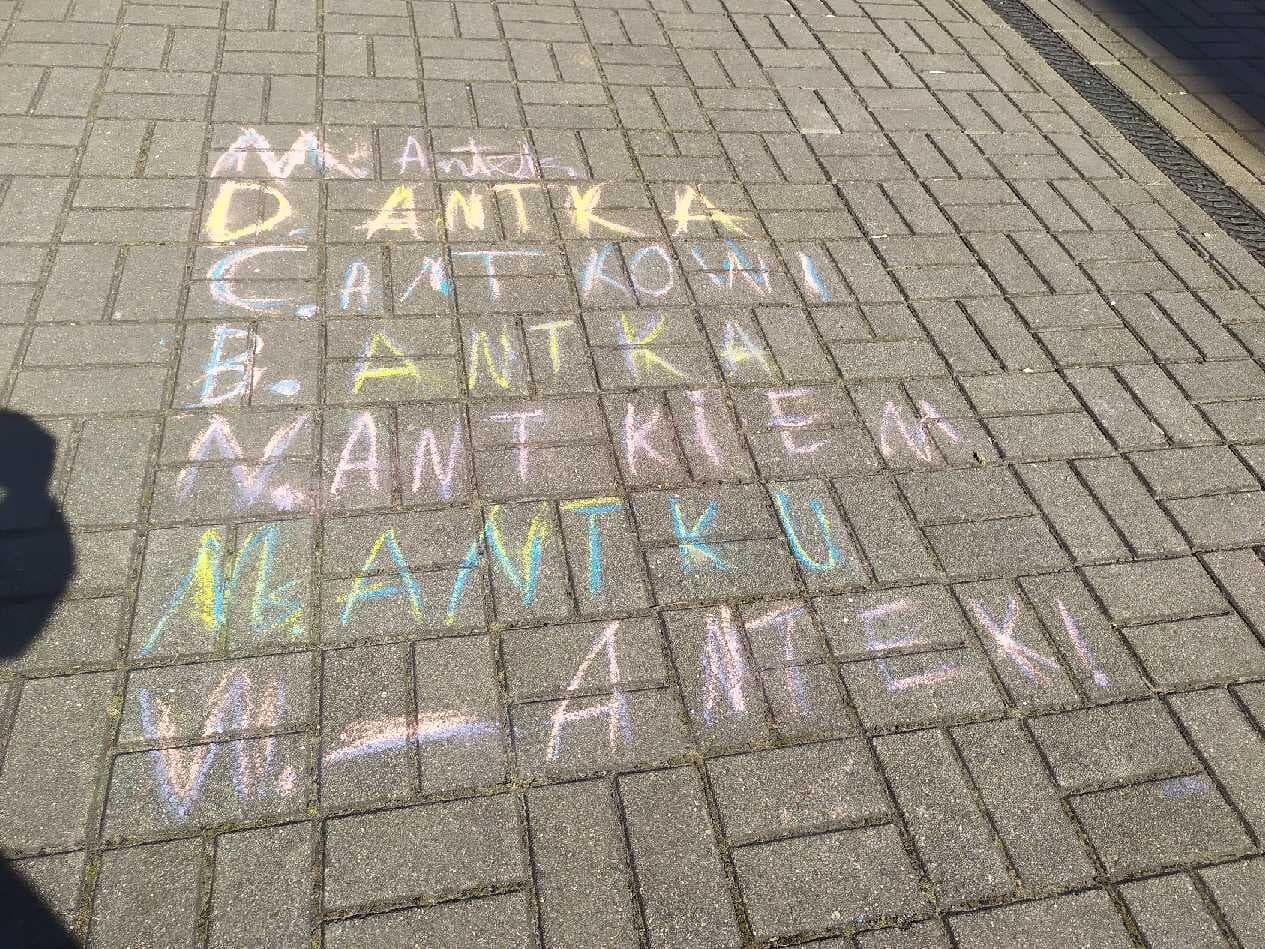 M. Antek
D. ANTKA
C. ANTKOWI
B. ANTKA
N. ANTKIEM
M. ANTKU
W. — ANTEK!